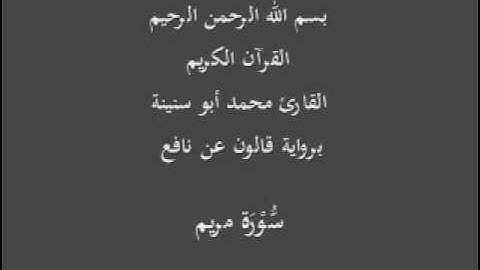 بسم الله الرحمن الرحيم
القرآن الكريم
القارئ محمد أبو سنينة
برواية قالون عن نافع
سُّوْرَة مريم